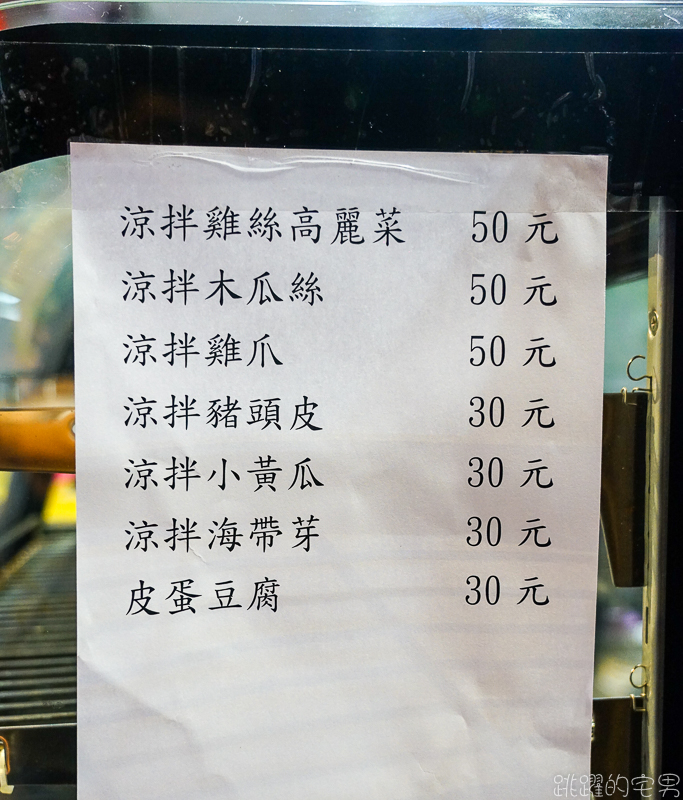 涼拌雞絲高麗菜 50 元
涼拌木瓜絲 50 元
涼拌雞爪 50 元
涼拌豬頭皮 30 元
涼拌小黃瓜 30 元
涼拌海帶芽 30 元
皮蛋豆腐 30 元
跳躍的宅男